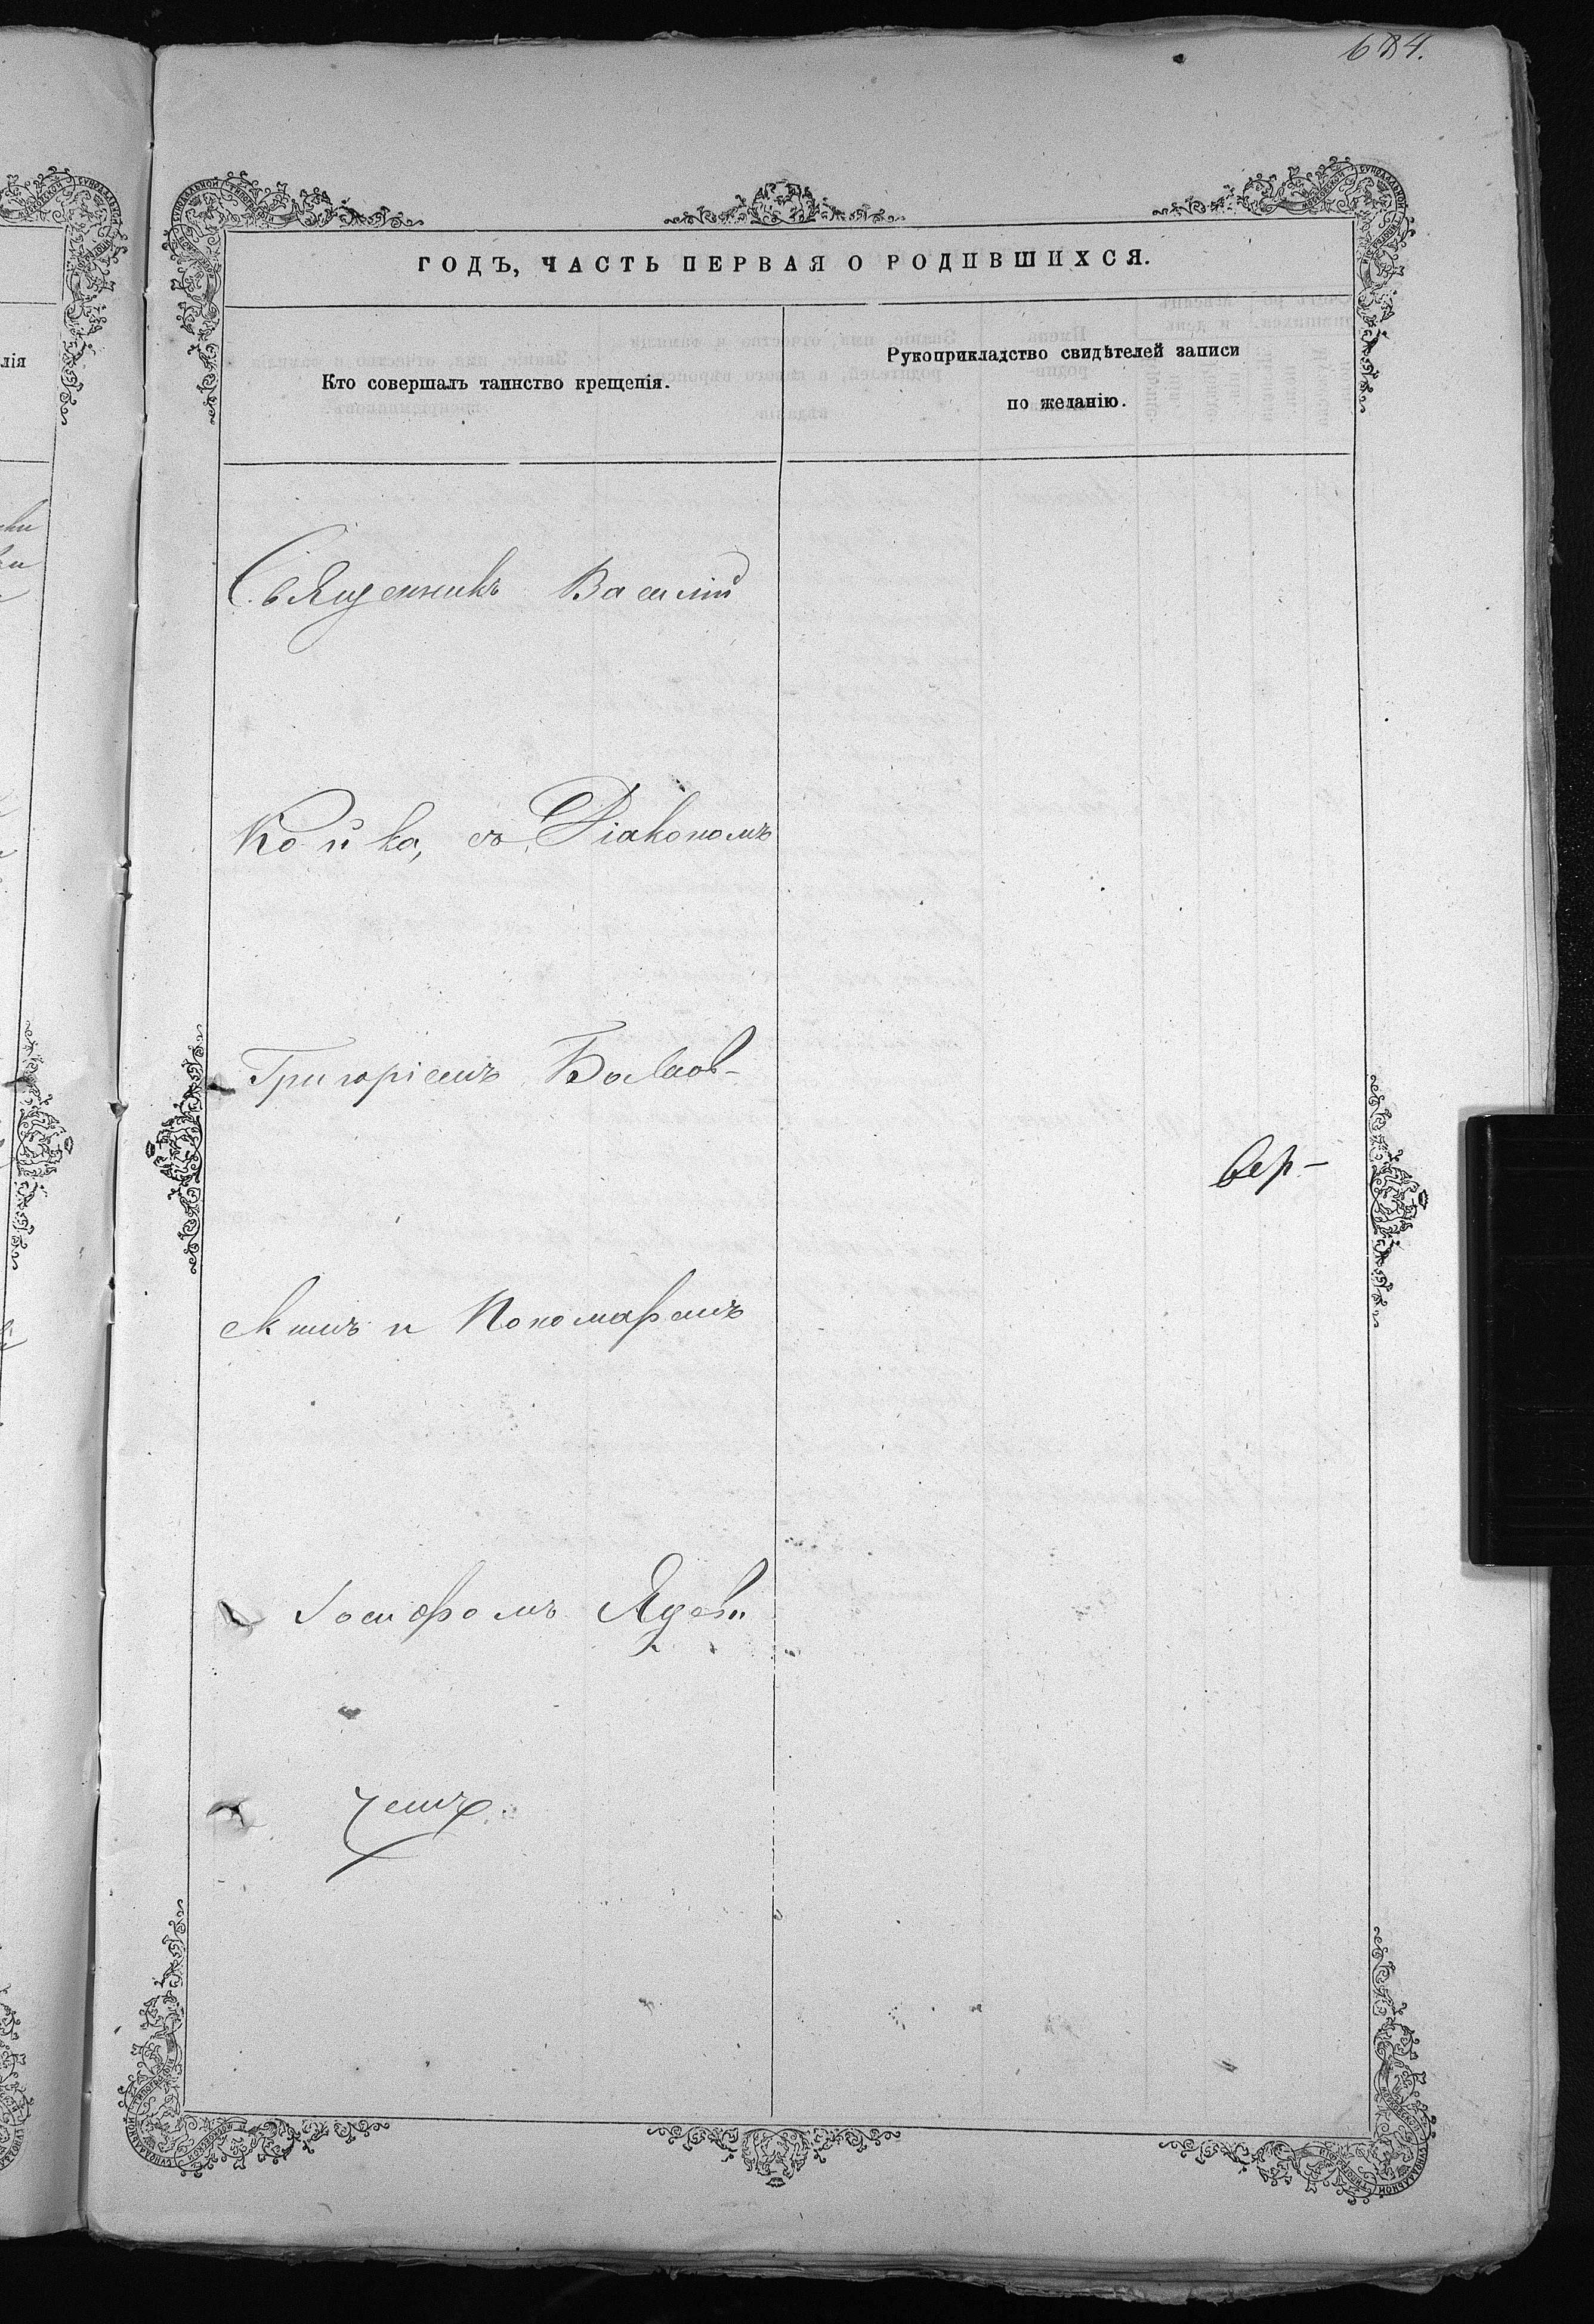 684.
ГОДЪ, ЧАСТЬ ПЕРВАЯ О РОДИВШИХСЯ.
Кто совершалъ таинство крещенія.
Рукоприкладство свидѣтелей записи
по желанію.
лія
Священникъ Василій
Койка, съ Діакономъ
Григоріемъ
вер-
и Пономаремъ
Іосифомъ
чемъ.